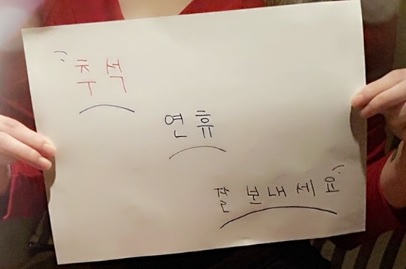 추석
연휴
잘 보내세요